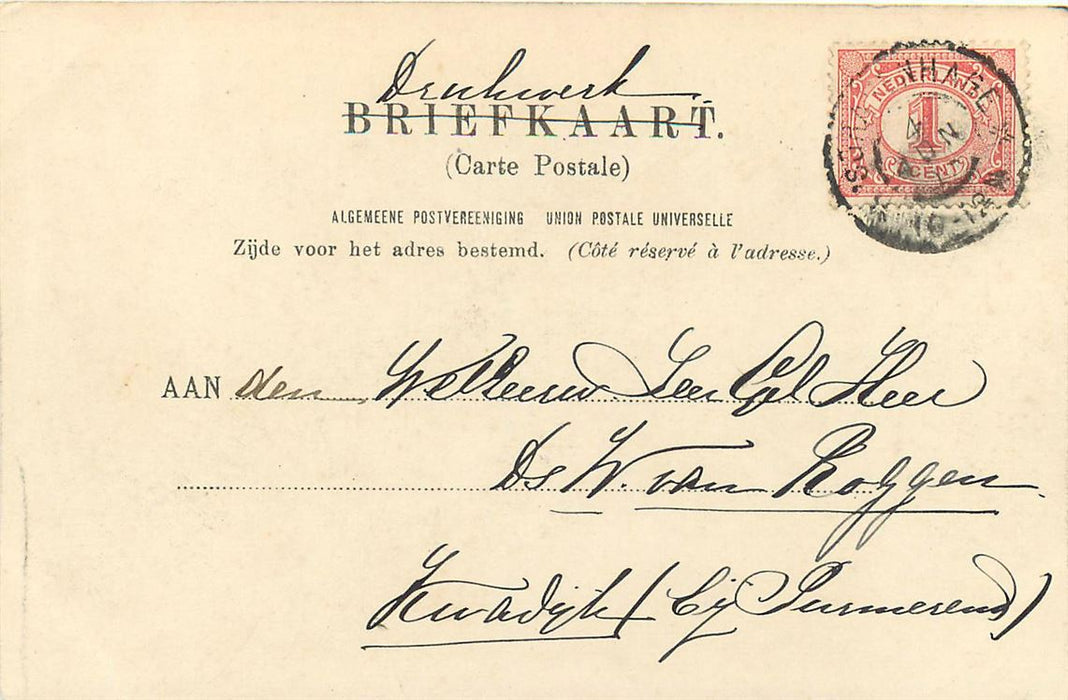 Drukwerk.
BRIEFKAART.
(Carte Postale)
ALGEMEENE POSTVEREENIGING UNION POSTALE UNIVERSELLE
Zijde voor het adres bestemd. (Côté réservé à l'adresse.)
NEDERLAND
1
CENT
'S-GRAVENHAGE
4 JUN
10-12V
AAN den WelEerw. Zeer Gel Heer
Ds W. van Roggen
Kwadijk (bij Purmerend)